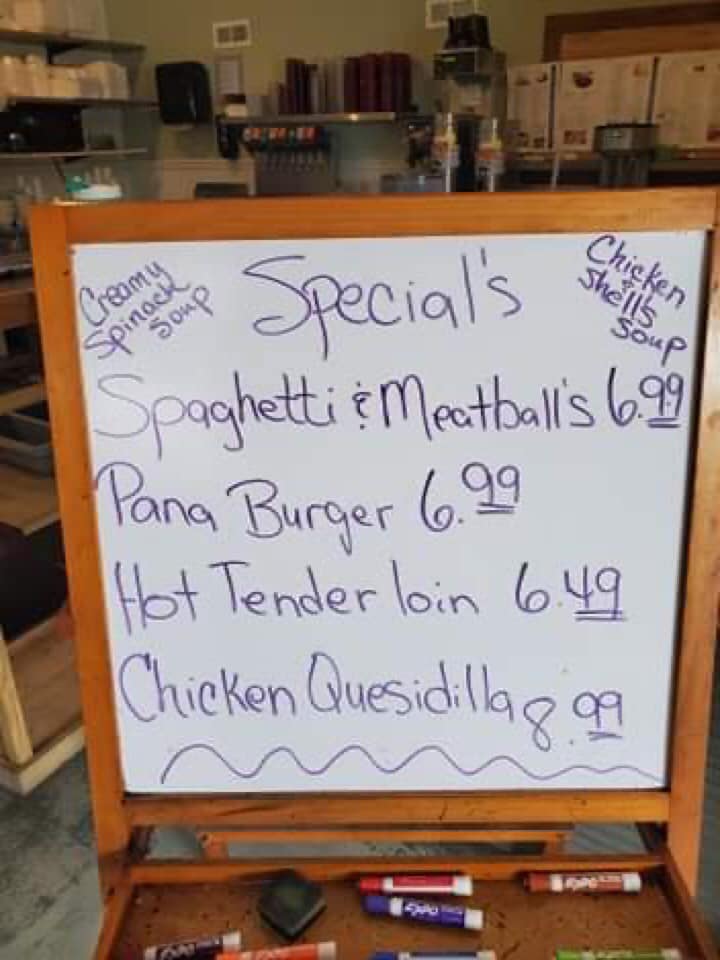 Creamy
Spinach
Soup
Special's
Chicken
& Shell's
Soup
Spaghetti & Meatball's 6.99
Pana Burger 6.99
Hot Tender loin 6.49
Chicken Quesidilla 8.99
EXPO
EXPO